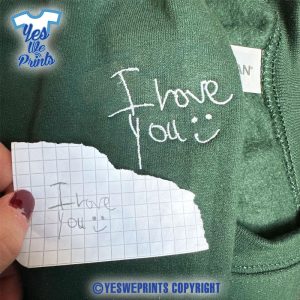 Yes
We
Prints
I love
You :)
I love
You :)
©YESWEPRINTS COPYRIGHT